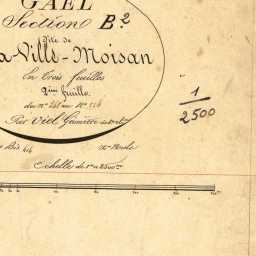 GAEL
Section B.2
dite de
a-Ville-Moisan
En trois feuilles
2eme feuille
Par Viel Géomètre
1
2500
Echelle de 1 a 2500